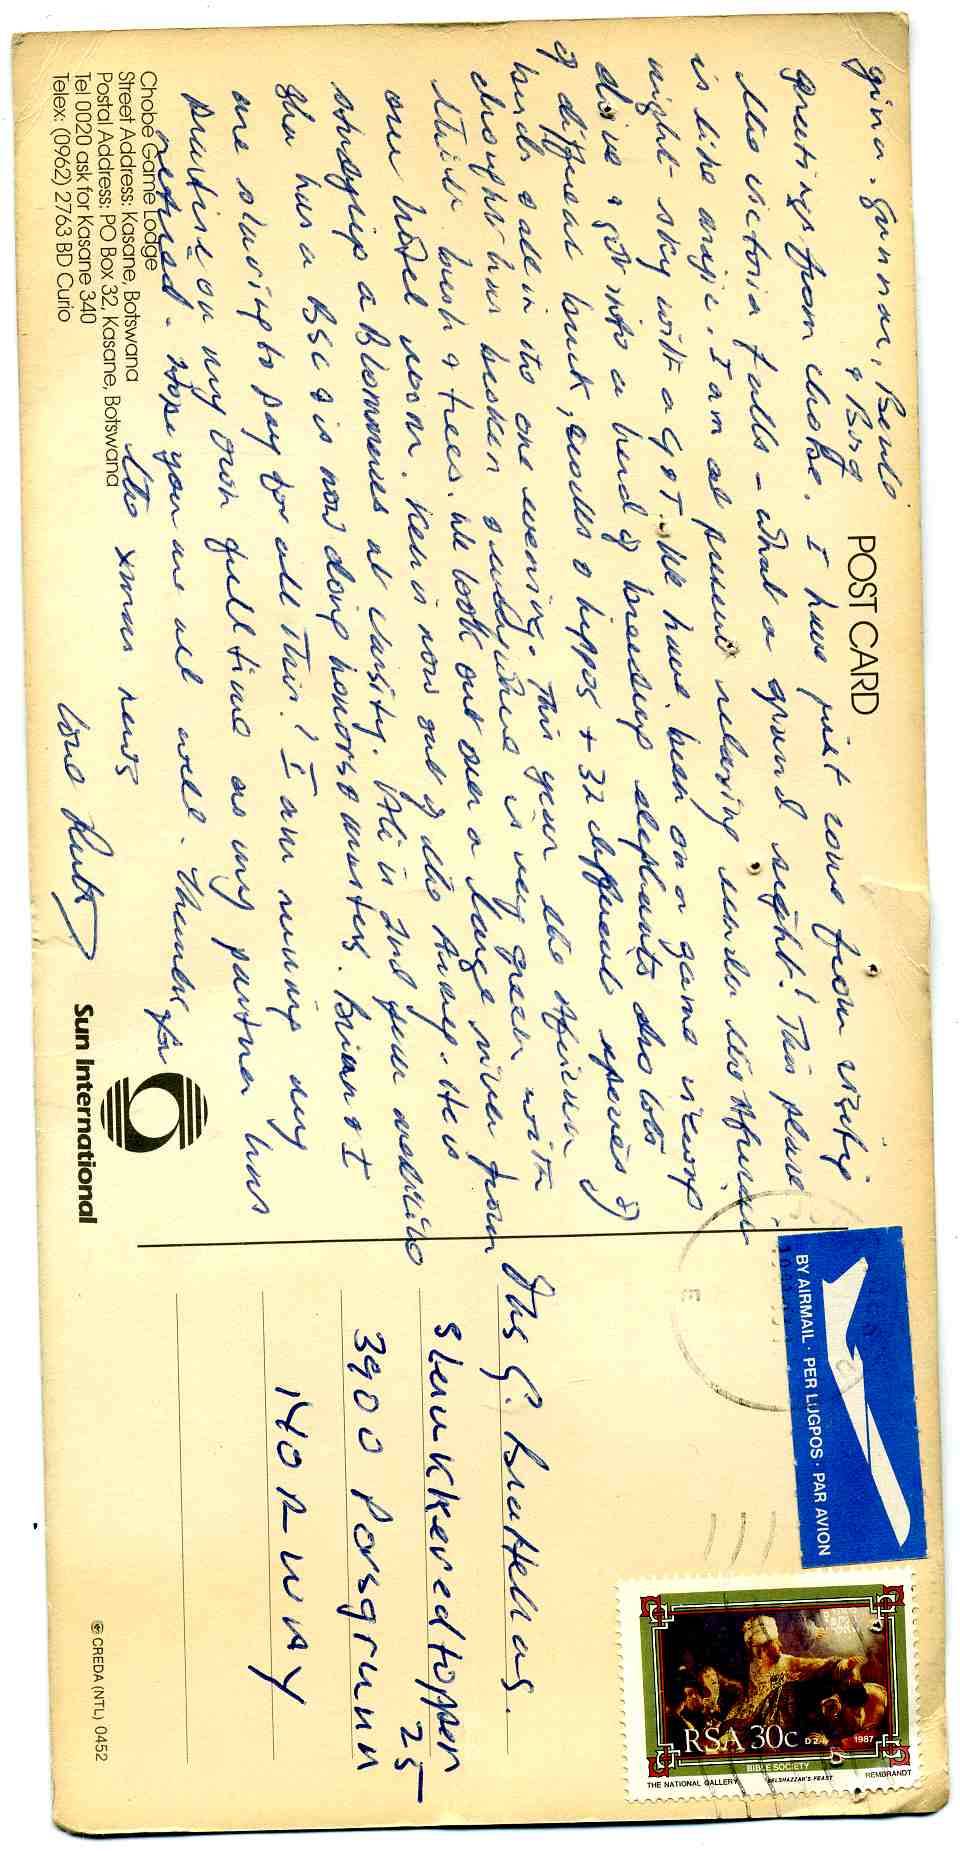 POST CARD
Gina, Gunnar, Bente
& Bird
greetings from Chobe. I have just come from visiting
the Victoria Falls - What a grand sight! This place
is like magic. I am at present relaxing under an African
night sky with a G & T. We have been on a game viewing
drive & got into a herd of breeding elephants also lots
of different buck, crocs & hippos + 32 different species of
birds all in the one evening. This year the African
drought has broken & is very green with
thick bush & trees. We look out over a large river from
our hotel room. Ken is now out of the Army. He is
studying a B Commerce at Varsity. Ali is 2nd year
She has a BSc & is now doing honours & masters. Brian & I
are slaving to pay for all this! I am running my
practise on my own full time as my partner has
retired. Hope you are all well. Thanks for
the xmas news
Love Ruth
Chobe Game Lodge
Street Address: Kasane, Botswana
Postal Address: PO Box 32, Kasane, Botswana
Tel 0020 ask for Kasane 340
Telex: (0962) 2763 BD Curio
Sun International
BY AIRMAIL · PER LUGPOS · PAR AVION
RSA 30c
1987
BIBLE SOCIETY
THE NATIONAL GALLERY BELSHAZZAR'S FEAST REMBRANDT
Mrs G. Bruttellas.
Slenkkeredtoppen
25
3900 Porsgrunn
NORWAY
CREDA (NTL) 0452